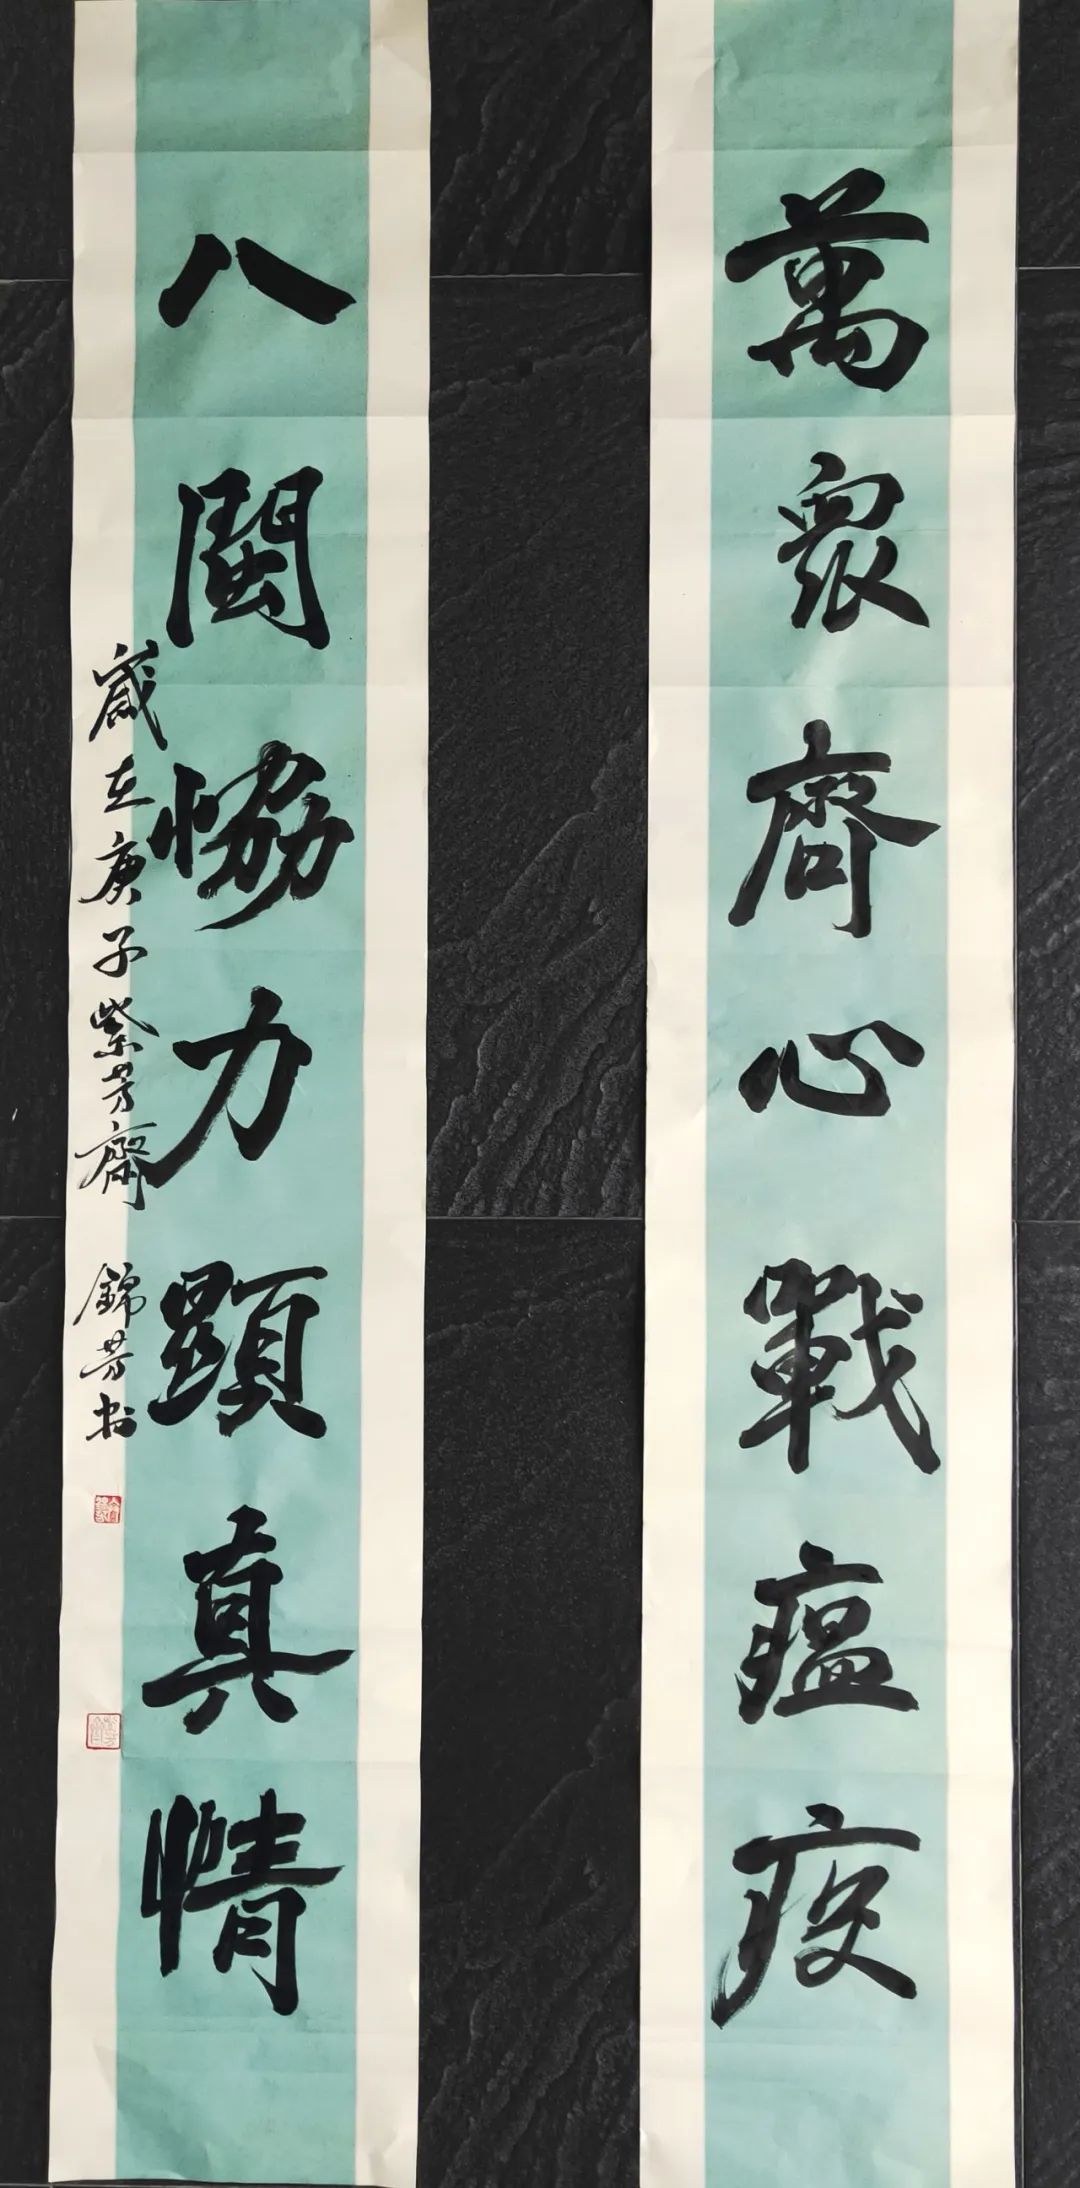 萬眾齊心戰瘟疫
八閩協力顯真情
歲在庚子紫芳齋 錦芳書